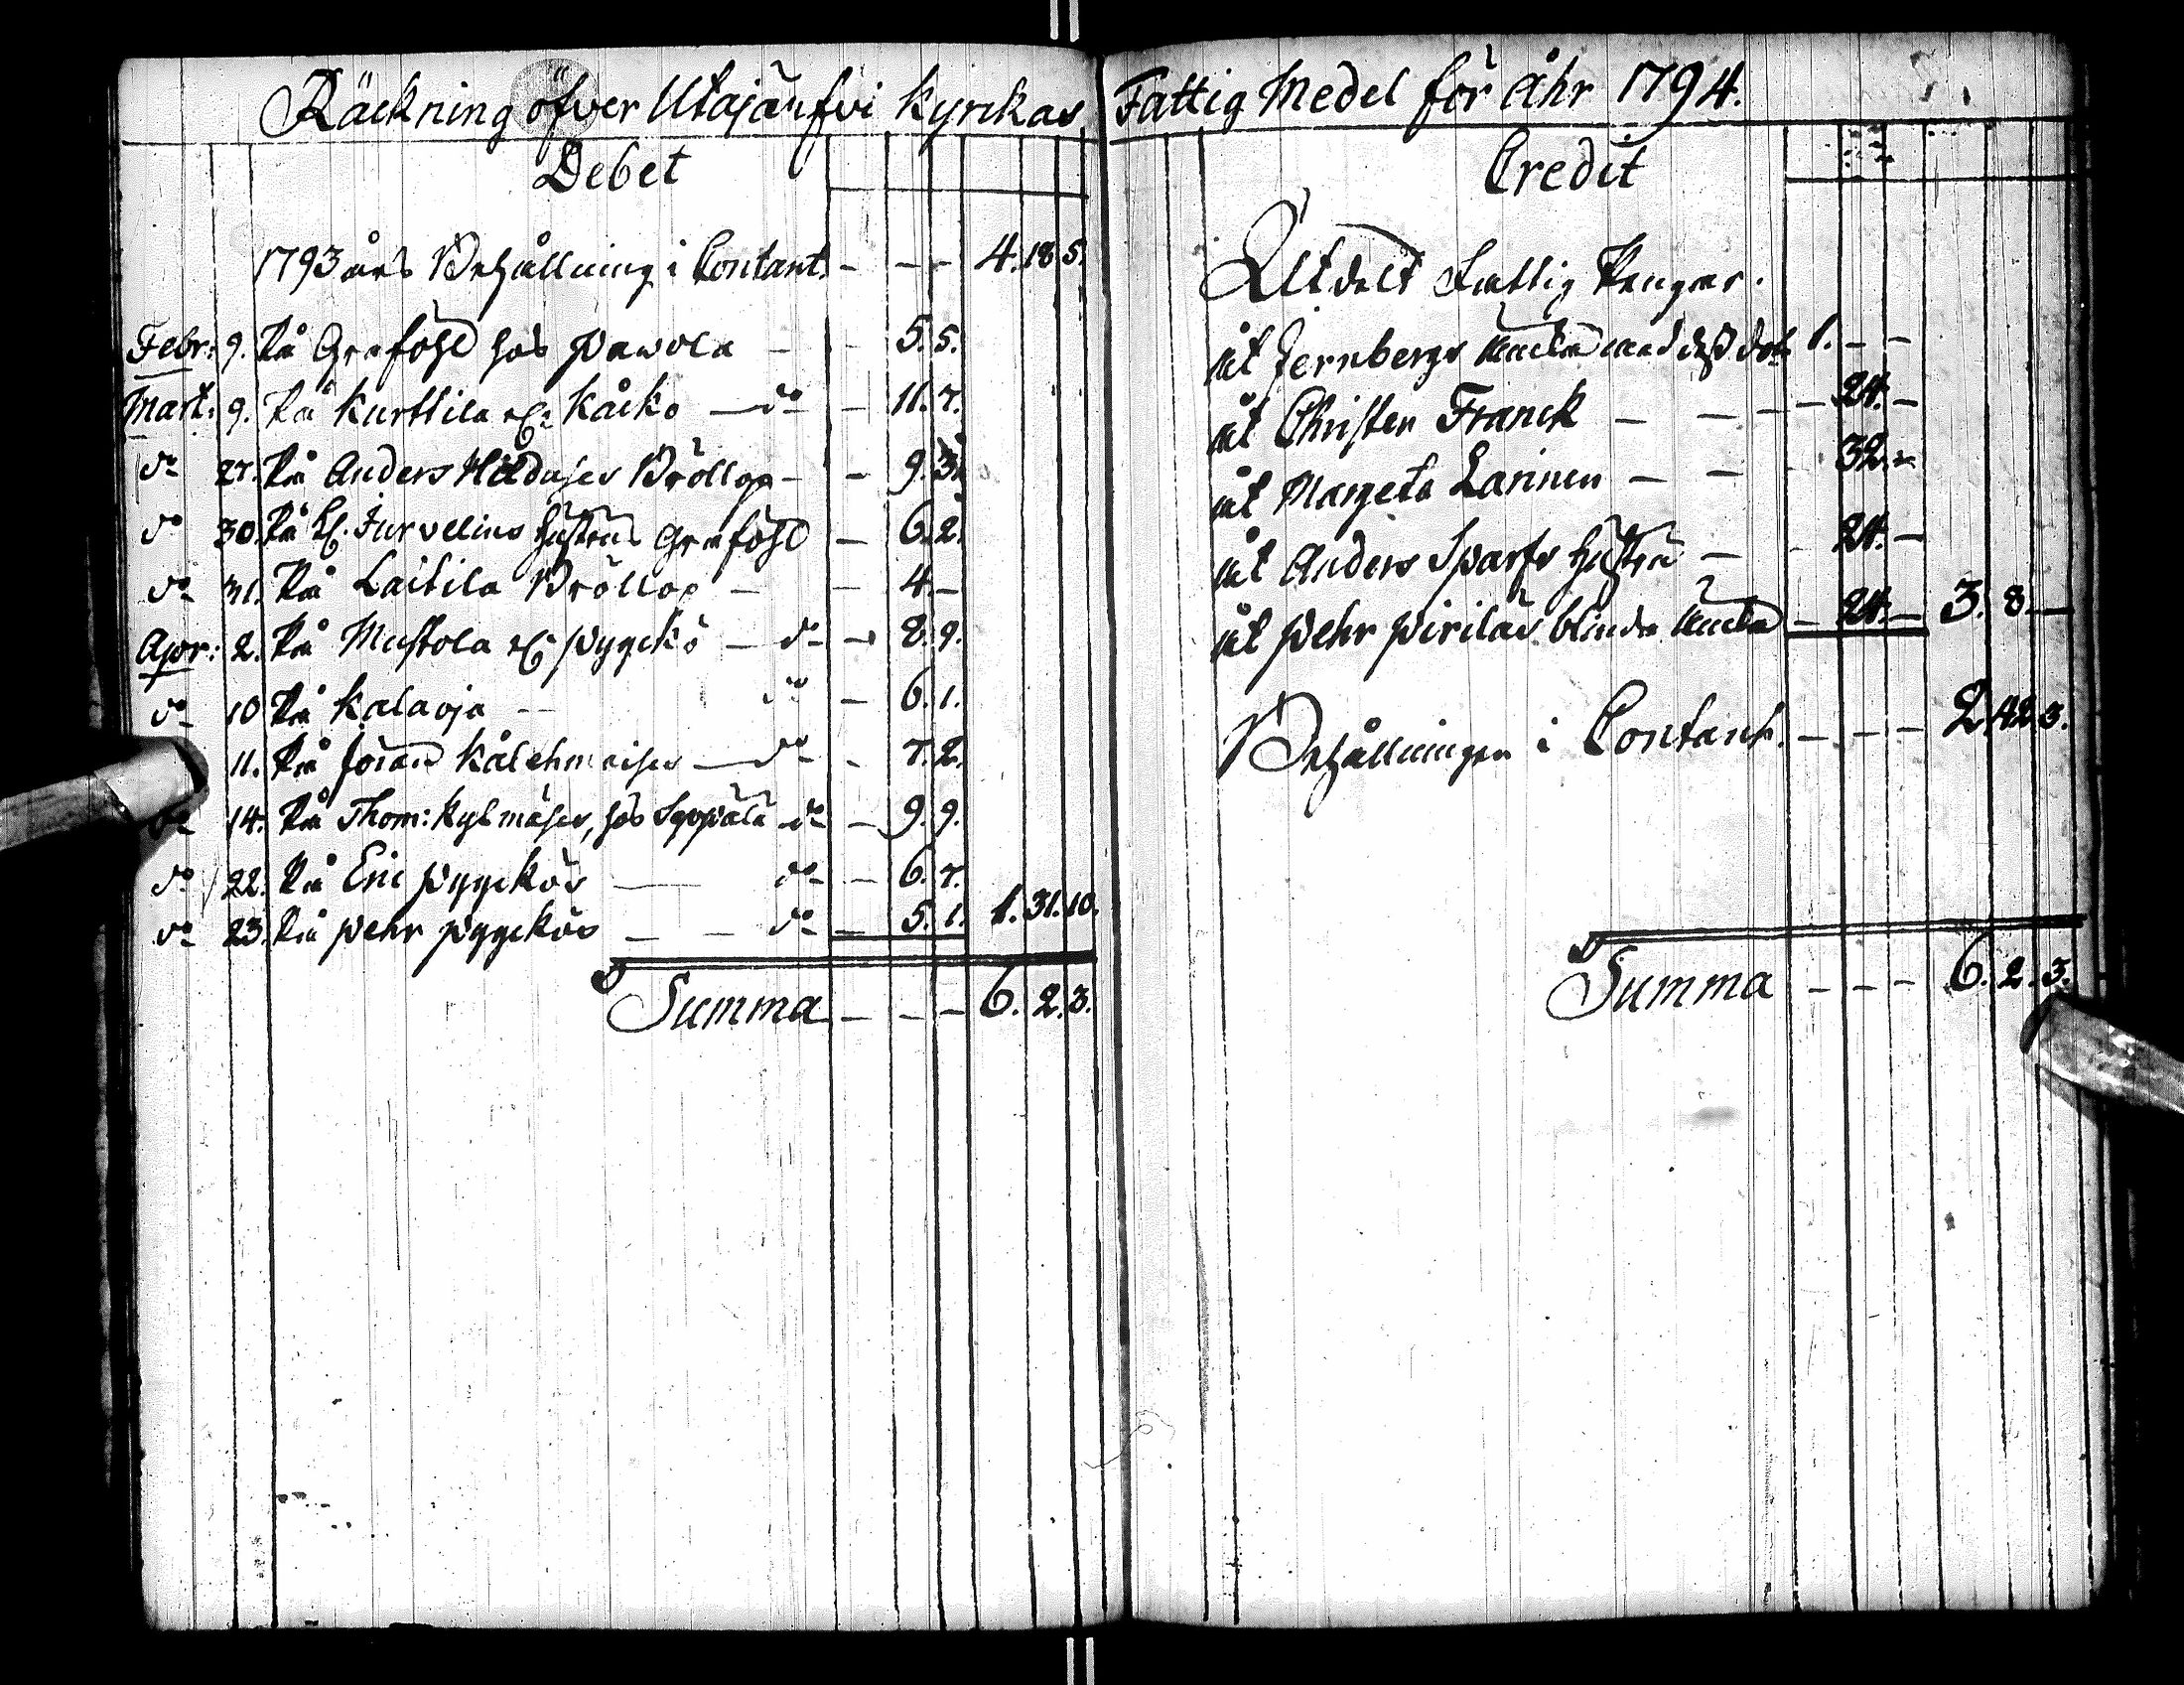 Räckning öfver Utajärfvi Kyrckas Fattig Medel för Åhr 1794.
Debet
1793 års Behållning i Contant. - - - 4. 18. 5.
Febr: 9. På Graföhl hos Pawola - - 5. 5.
Mart: 9. På Kurttila Kåcko - do - 11. 7.
do 27. På Anders Bröllop - - 9. 3.
do 30. På Jurvelius hustrus Graföhl - 6. 2.
do 31. På Laitila Bröllop - - 4. -
Apr: 2. På Mustola Pyyckö - do - 8. 9.
do 10 På Kalaoja - do - 6. 1.
11. På Jöran - do - 7. 2.
do 14. På Thom: Kylmäses, hos Seppälä do - 9. 9.
do 22. På Eric Pyyckös - do - 6. 7.
do 23. På Pehr Pyyckös - - do - 5. 1. 1. 31. 10.
Summa - - - 6. 2. 3.
Credit
Utdelt Fattig Pengar.
åt Jernbergs Encka med dess dot. 1. - -
åt Christer Franck - - - - 24. -
åt Margeta Larinen - - - 32. -
åt Anders Sparfs hustru - - 24. -
åt Pehr Piriläs blinda Encka - 24. - 3. 8. -
Behållningen i Contant. - - - 2. 42. 3.
Summa - - - 6. 2. 3.